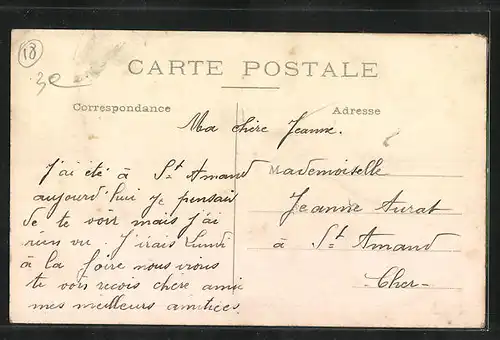 18
3e
CARTE POSTALE
Correspondance
Adresse
Ma chère Jeanne.
J'ai été à St Amand
aujourd'hui je pensais
de te voir mais j'ai
rien vu. J'irais Lundi
à la foire nous irons
te voir reçois chère amie
mes meilleurs amitiées
Mademoiselle
Jeanne Aurat
à St Amand
Cher